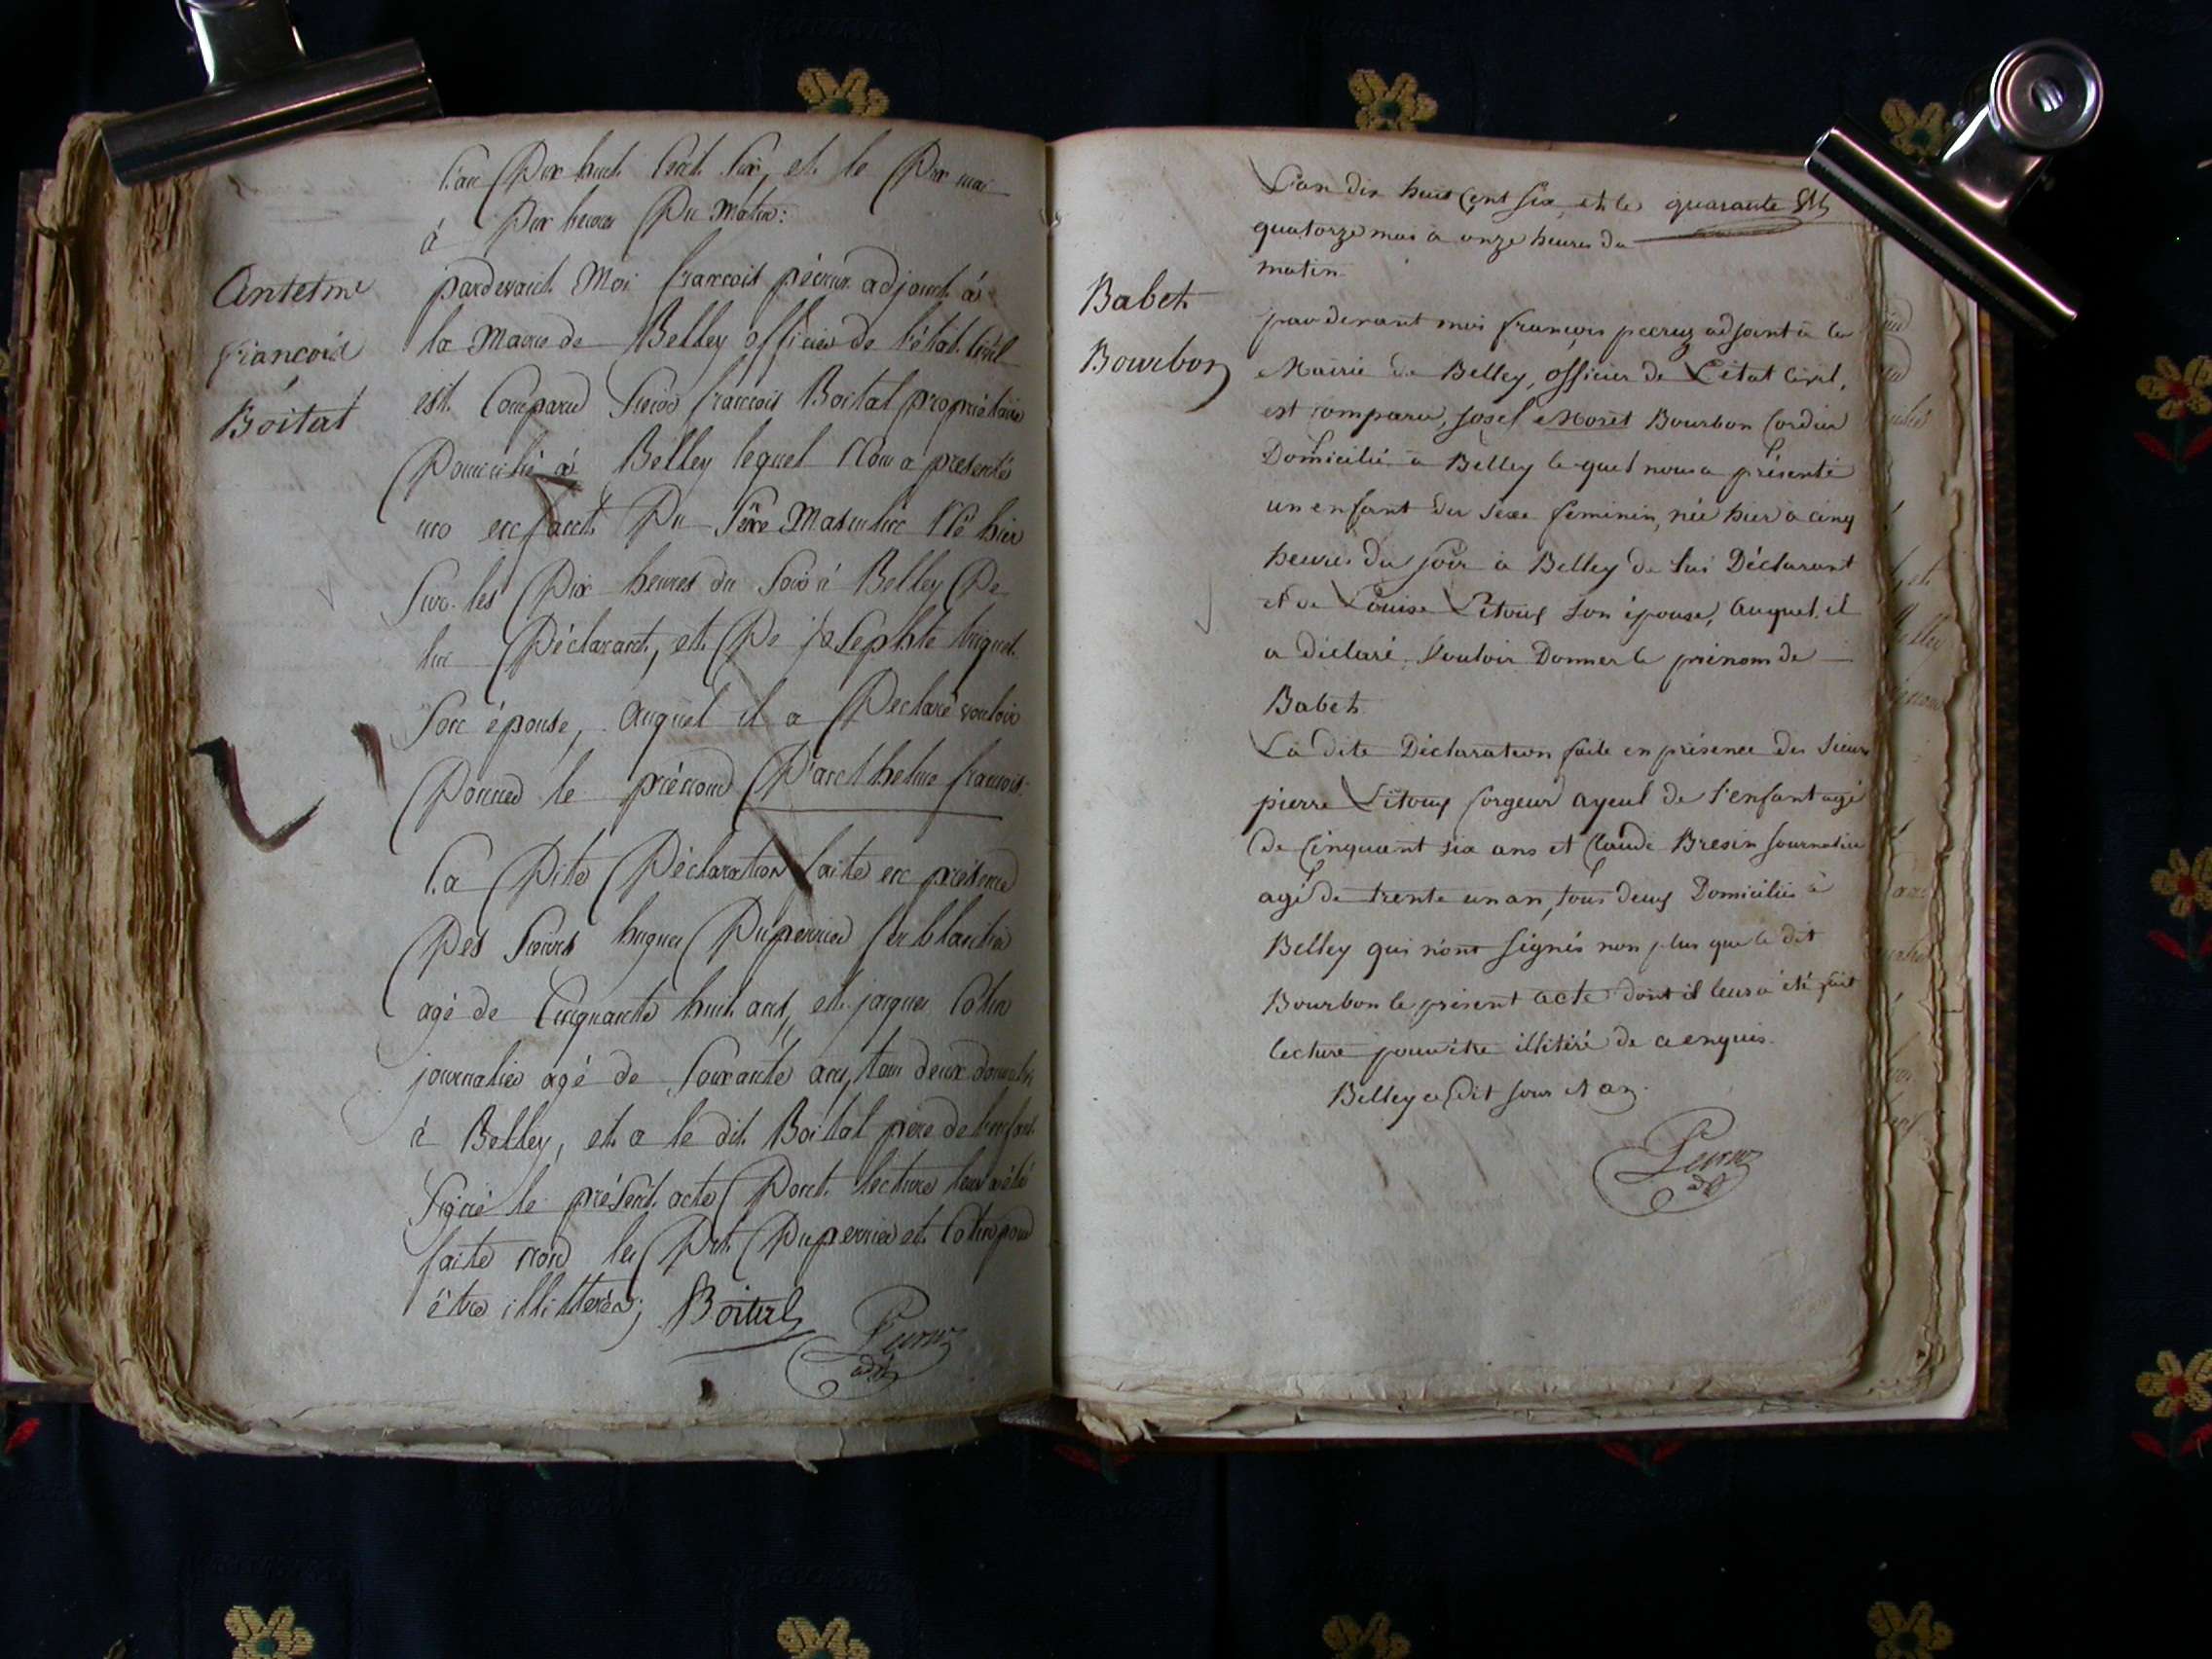 L'an Dix huit Cent Six, et le Dix mai
à Dix heures Du Matin:
Antelme
François
Boitat
pardevant Moi françois pécruz adjoint à
la Mairie de Belley officier de l'état Civil
est Comparu Sieur françois Boitat propriétaire
Domicilié à Belley lequel Nous a presenté
un enfant Du Sexe Masculin Né hier
Sur les Dix heures du Soir à Belley De
lui Déclarant, et De josephte huguet
Son épouse, Auquel il a Declaré vouloir
Donner le prénom D'anthelme françois.
La Dite Déclaration faite en présence
Des Sieurs hugues Duperrier ferblantier
agé de Cinquante huit ans, et jacques Cotin
journalier agé de Soixante ans, tous deux domiciliés
à Belley, et a le dit Boitat père de l'enfant
Signé le présent acte Dont lecture leur a été
faite non les Dits Duperrier et Cotin pour
être illitterés; Boitat
Pecruz
adjt
L'an dix huit Cent Six, et le quarante Six
quatorze mai à onze heures du
matin.
Babet
Bourbon
par devant moi françois pecruz adjoint à la
Mairie de Belley, officier de L'état Civil,
est comparu, Josef Moret Bourbon Cordier
Domicilié à Belley le quel nous a présenté
un enfant du Sexe feminin, née hier à cinq
heures du jour à Belley de lui Déclarant
et de Louise Litoux Son épouse, Auquel il
a déclaré Vouloir Donner le prénom de
Babet.
La dite Déclaration faite en présence des Sieurs
pierre Litoux forgeur ayeul de l'enfant agé
de Cinquant six ans et Claude Bresin Journalier
agé de trente un an, tous deux Domiciliés à
Belley qui n'ont Signés non plus que le dit
Bourbon le présent acte dont il leur a été fait
lecture pour être illitéré de ce enquis.
Belley ce Dit jour et an.
Pecruz
adjt